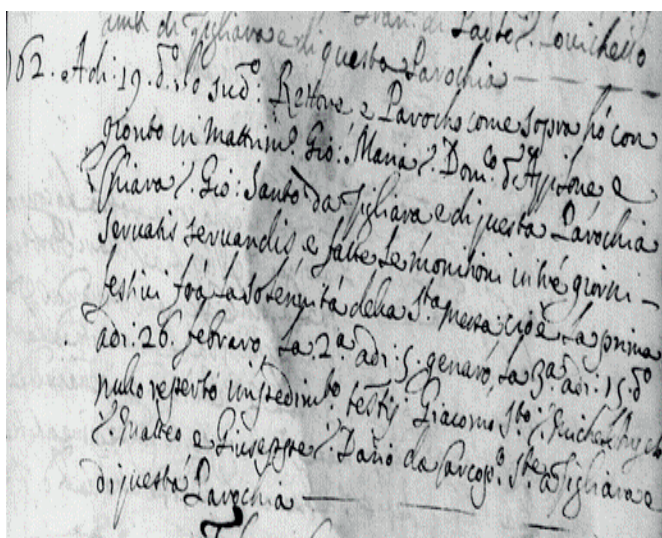 amb. di Tigliara e di questa Parochia
162. Adi. 19. d.º Io sud.º Rettore e Parocho come sopra hò con
gionto in Matrim.º Gio: Maria q. Dom.co d'Agitone, e
Chiara q. Gio: Santo da Tigliara e di questa Parochia
servatis servandis, e fatte le monitioni in tré giorni
festivi frà la solennità della S.ta messa cioè la prima
adi. 26. febraro, la 2.ª adi. 5. genaro, la 3.ª adi. 15. d.º
nullo reperto impedim.to testij Giacomo
q. Matteo e Giuseppe q. da Tigliara e
di questa Parochia